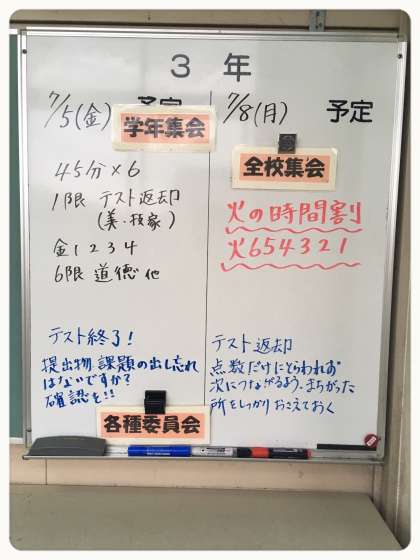 3年
7/5(金) 予定
学年集会
45分×6
1限 テスト返却
(美・技家)
金1234
6限 道徳 他
テスト終了!
提出物 課題の出し忘れ
はないですか?
確認を!!
各種委員会
7/8(月) 予定
全校集会
火の時間割
火654321
テスト返却
点数だけにとらわれず
次につながるよう、まちがった
所をしっかりおさえておく